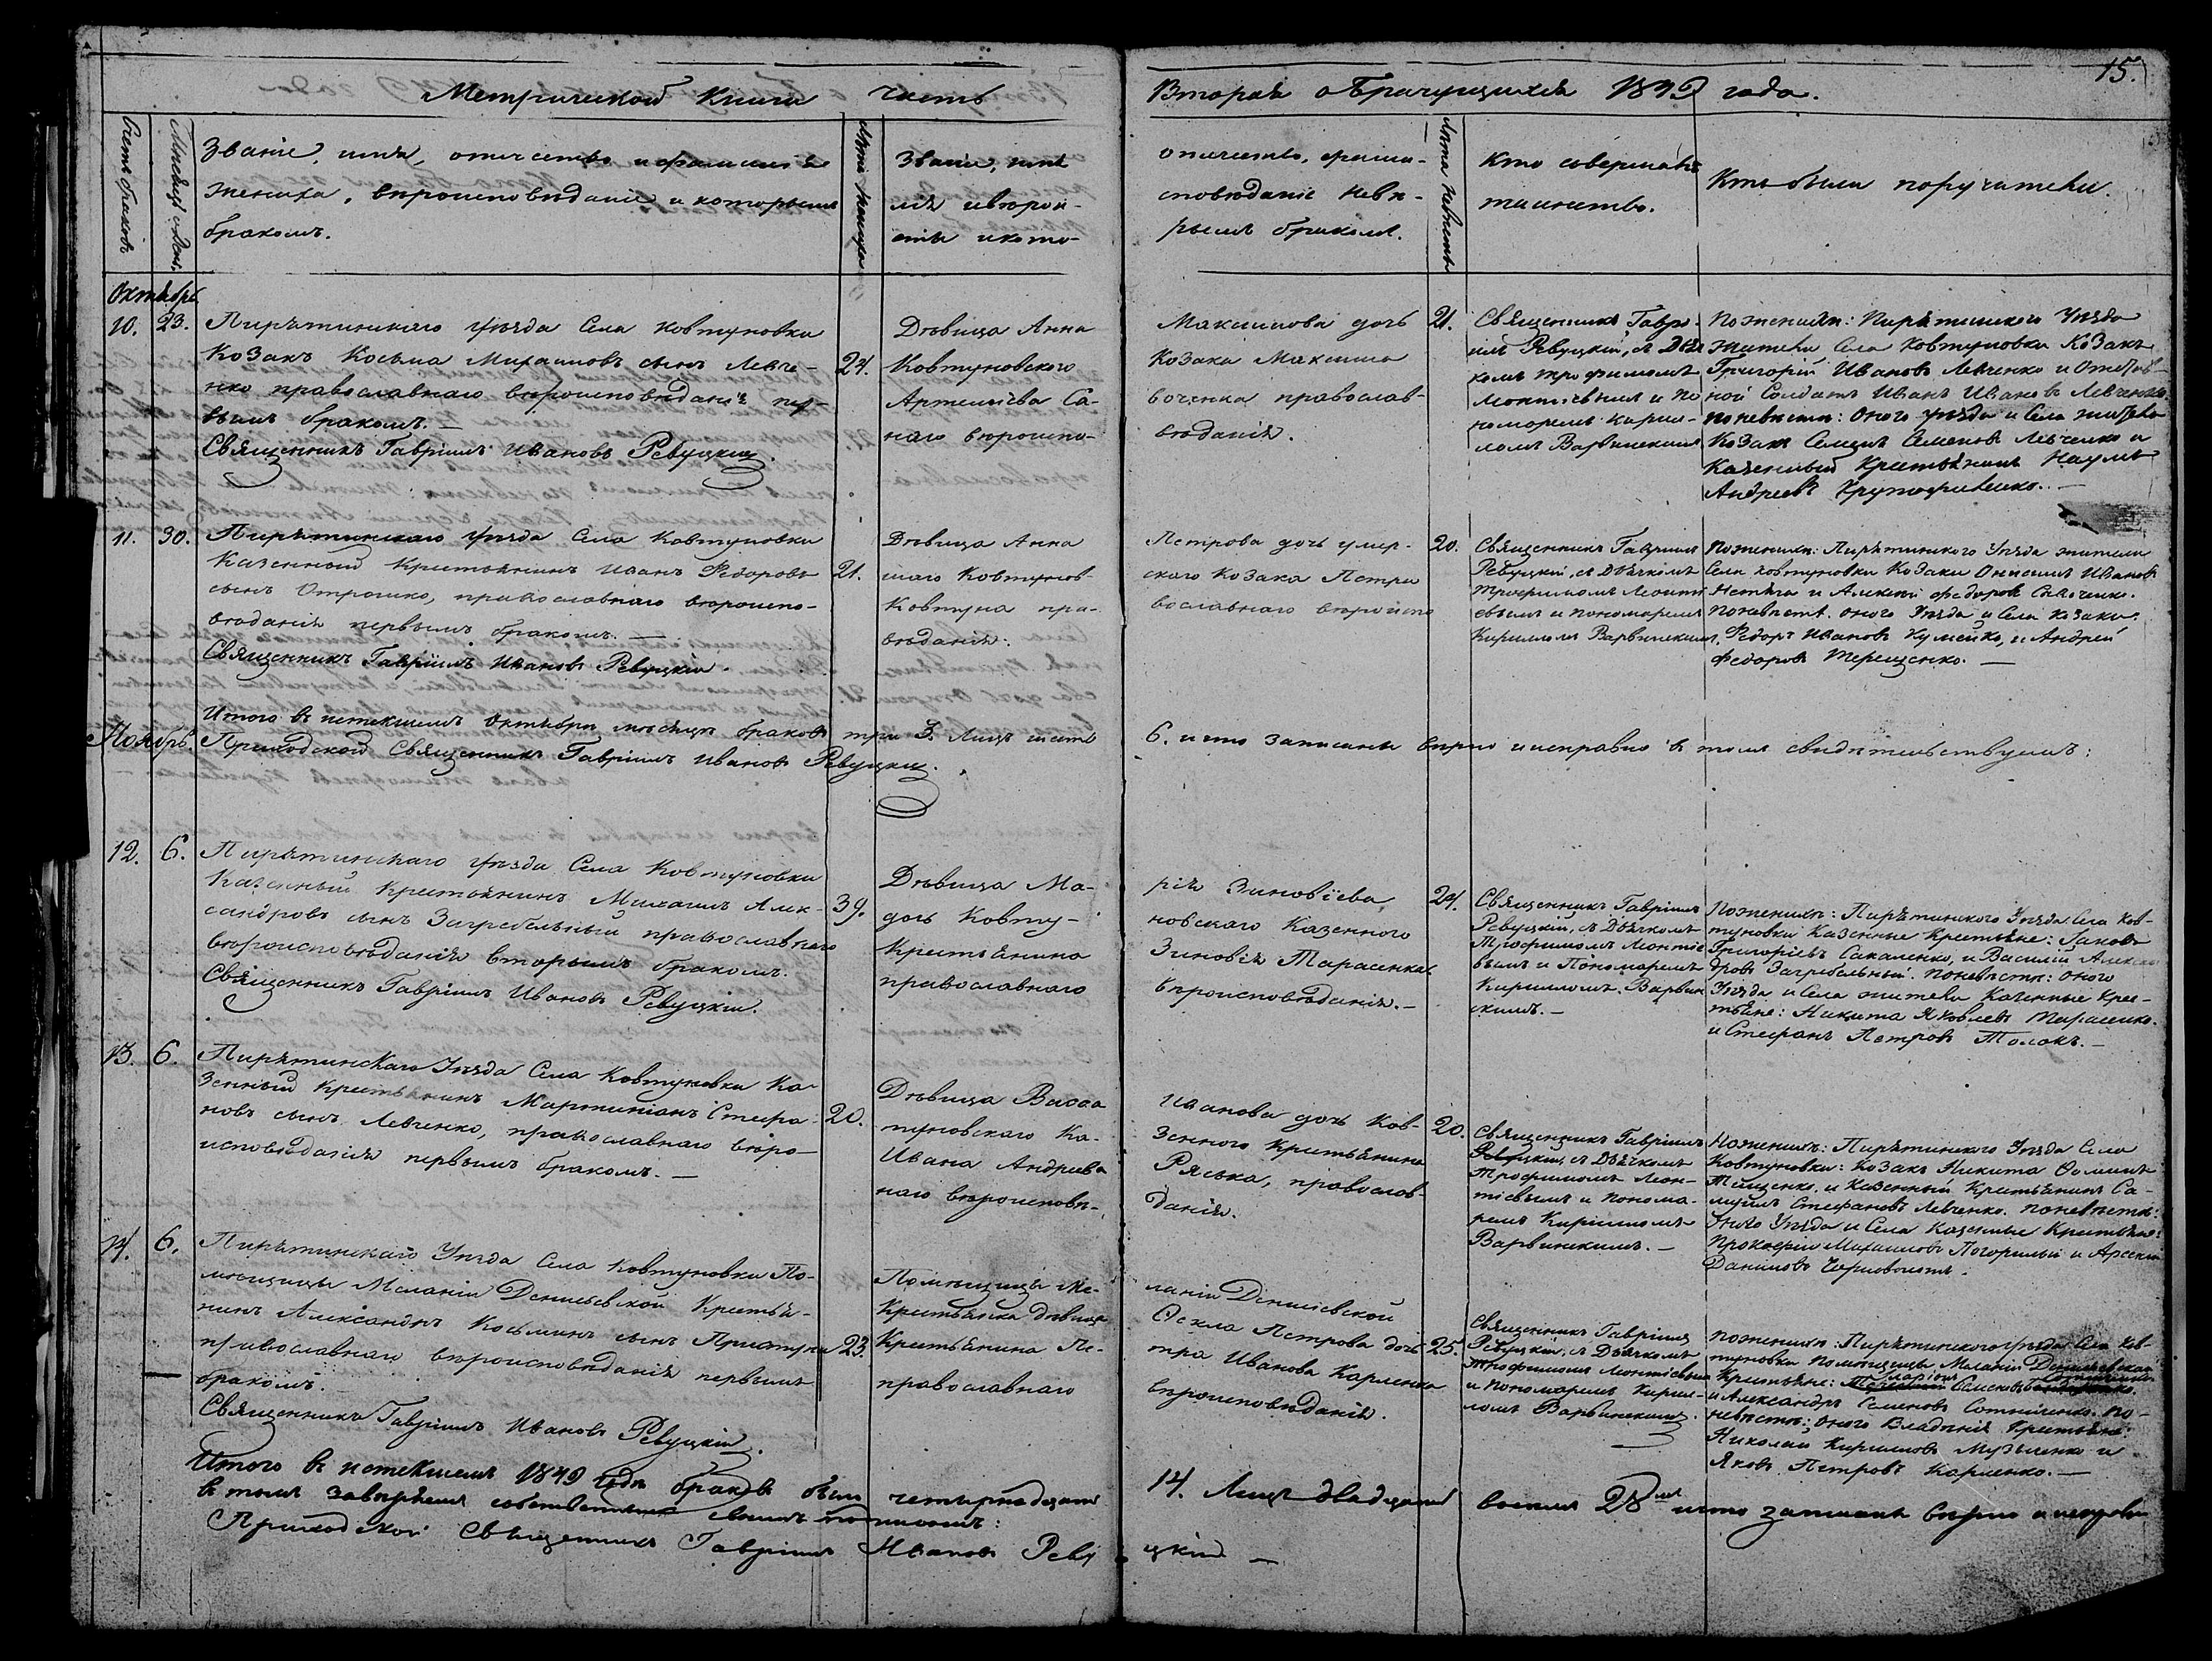 15.
Метрической Книги часть Вторая о Бракущихся 1849 года.
Счетъ браковъ
Мѣсяцъ и день.
Званіе, имя, отчество и фамилія
жениха, вѣроисповѣданіе и которымъ
бракомъ.
Лѣта жениха
Званіе, имя
лія и вѣрои-
сты и кото-
отчество, фами-
сповѣданіе невѣ-
рымъ бракомъ.
Лѣта невѣсты
Кто совершалъ
таинство.
Кто были поручители.
Октябрь
10. 23. Пирятинскаго уѣзда Села Ковтуновки
Козакъ Косьма Михаиловъ сынъ Левче-
нко православнаго вѣроисповѣданія пер-
вымъ бракомъ. —
Священникъ Гавріилъ Ивановъ Ревуцкій.
24.
Дѣвица Анна
Ковтуновского
Артемиева Са-
наго вѣроиспо-
Максимова дочь
Козака Максима
воченка православ-
вѣданія.
21.
Священникъ Гаврі-
илъ Ревуцкій, съ Дья
комъ Трофимомъ
Леонтіевымъ и По
номаремъ Кирил-
ломъ Варвинскимъ
Поженихѣ: Пирятинского Уѣзда
жители Села Ковтуновки Козакъ
Григорій Ивановъ Левченко и Отстав-
ной Солдатъ Иванъ Ивановъ Левченко
поневѣстѣ: оного уѣзда и Села жители
Козакъ Семенъ Семеновъ Левченко и
Казенный Крестьянинъ Наумъ
Андреевъ —
11. 30. Пирятинскаго уѣзда Села Ковтуновки
Казенный Крестьянинъ Иванъ Федоровъ
сынъ Отрошко, православнаго вѣроиспо-
вѣданія первымъ бракомъ. —
Священникъ Гавріилъ Ивановъ Ревуцкій.
21.
Дѣвица Анна
шаго Ковтунов-
Ковтуна пра-
вѣданія.
Петрова дочь умер-
ского Козака Петра
вославнаго вѣроиспо
20.
Священникъ Гавріилъ
Ревуцкій, съ Дьячкомъ
Трофимомъ Леонті
евымъ и пономаремъ
Кирилломъ Варвинскимъ.
Поженихѣ: Пирятинского Уѣзда жители
Села Ковтуновки Козаки Онисимъ Ивановъ
Нетяга и Алексѣй Федоровъ Савоченко.
Поневѣстѣ. оного Уѣзда и Села Козаки.
Федоръ Ивановъ Кумейко, и Андрей
Федоровъ Терещенко. —
Итого въ истекшемъ Октябрѣ мѣсяцѣ браковъ три 3. Лицъ шесть 6. и что записаны вѣрно и исправно въ томъ свидѣтельствуемъ:
Ноябрь. Приходской Священникъ Гавріилъ Ивановъ Ревуцкій.
12. 6. Пирятинскаго уѣзда Села Ковтуновки
Казенный Крестьянинъ Михаилъ Алек-
сандровъ сынъ Загребельный православнаго
вѣроисповѣданія вторымъ бракомъ.
Священникъ Гавріилъ Ивановъ Ревуцкій.
39.
Дѣвица Ма-
дочь Ковту-
Крестьянина
православнаго
рія Зиновіева
новскаго Казенного
Зиновія Тарасенка
вѣроисповѣданія. —
24.
Священникъ Гавріилъ
Ревуцкій, съ Дьячкомъ
Трофимомъ Леонтіе
вымъ и Пономаремъ
Кирилломъ Варвин
скимъ. —
Поженихѣ: Пирятинского Уѣзда Села Ков-
туновки Казенные Крестьяне: Іаковъ
Григоріевъ Сакаленко, и Василій Алексан
дровъ Загребельный. поневѣстѣ: оного
Уѣзда и Села жители Казенные Крес-
тьяне: Никита Яковлевъ Тарасенко.
и Стефанъ Петровъ Толокъ. —
13. 6. Пирятинскаго Уѣзда Села Ковтуновки Ка-
зенный Крестьянинъ Мартиніанъ Стефа-
новъ сынъ Левченко, православнаго вѣро-
исповѣданія первымъ бракомъ. —
20.
Дѣвица Васса
туновскаго Ка-
Ивана Андреева
наго вѣроисповѣ-
Иванова дочь Ков-
зенного Крестьянина
Ряська, православ-
данія.
20.
Священникъ Гавріилъ
Ревуцкій, съ Дьячкомъ
Трофимомъ Леон-
тіевымъ и понома-
ремъ Кирилломъ
Варвинскимъ. —
Поженихѣ: Пирятинского Уѣзда Села
Ковтуновки: Козакъ Никита Фоминъ
Тищенко, и Казенный Крестьянинъ Са-
муилъ Стефановъ Левченко. поневѣстѣ:
Оного Уѣзда и Села Казенные Крестьяне:
Прокофій Михаиловъ Погорилый и Арсеній
Даниловъ
14. 6. Пирятинскаго Уѣзда Села Ковтуновки По-
мѣщицы Меланіи Денисьевской Крестья-
нинъ Александръ Косьминъ сынъ Приступа
православнаго вѣроисповѣданія первымъ
бракомъ. —
Священникъ Гавріилъ Ивановъ Ревуцкій.
23.
Помѣщицы Ме-
Крестьянка дѣвица
Крестьянина Пе-
православнаго
ланіи Денисіевской
Фекла Петрова дочь
тра Иванова Карпенка
вѣроисповѣданія.
25.
Священникъ Гавріилъ
Ревуцкій, съ Дьячкомъ
Трофимомъ Леонтіевымъ
и пономаремъ Кирил-
ломъ Варвинскимъ.
Поженихѣ: Пирятинского уѣзда Села Ков-
туновки помѣщицы Меланіи Денисьевской
Крестьяне: Семеновъ
и Александръ Семеновъ Сотниченко. по-
невѣстѣ: оного Владѣнія Крестьяне:
Николай Кириловъ Музыленко и
Яковъ Петровъ Карпенко. —
Итого въ истекшемъ 1849 годѣ браковъ было четырнадцать 14. Лицъ двадцать восемь 28 и что записаны вѣрно и исправно
въ томъ завѣряемъ собственнымъ своимъ подписомъ:
Приходской Священникъ Гавріилъ Ивановъ Ревуцкій —